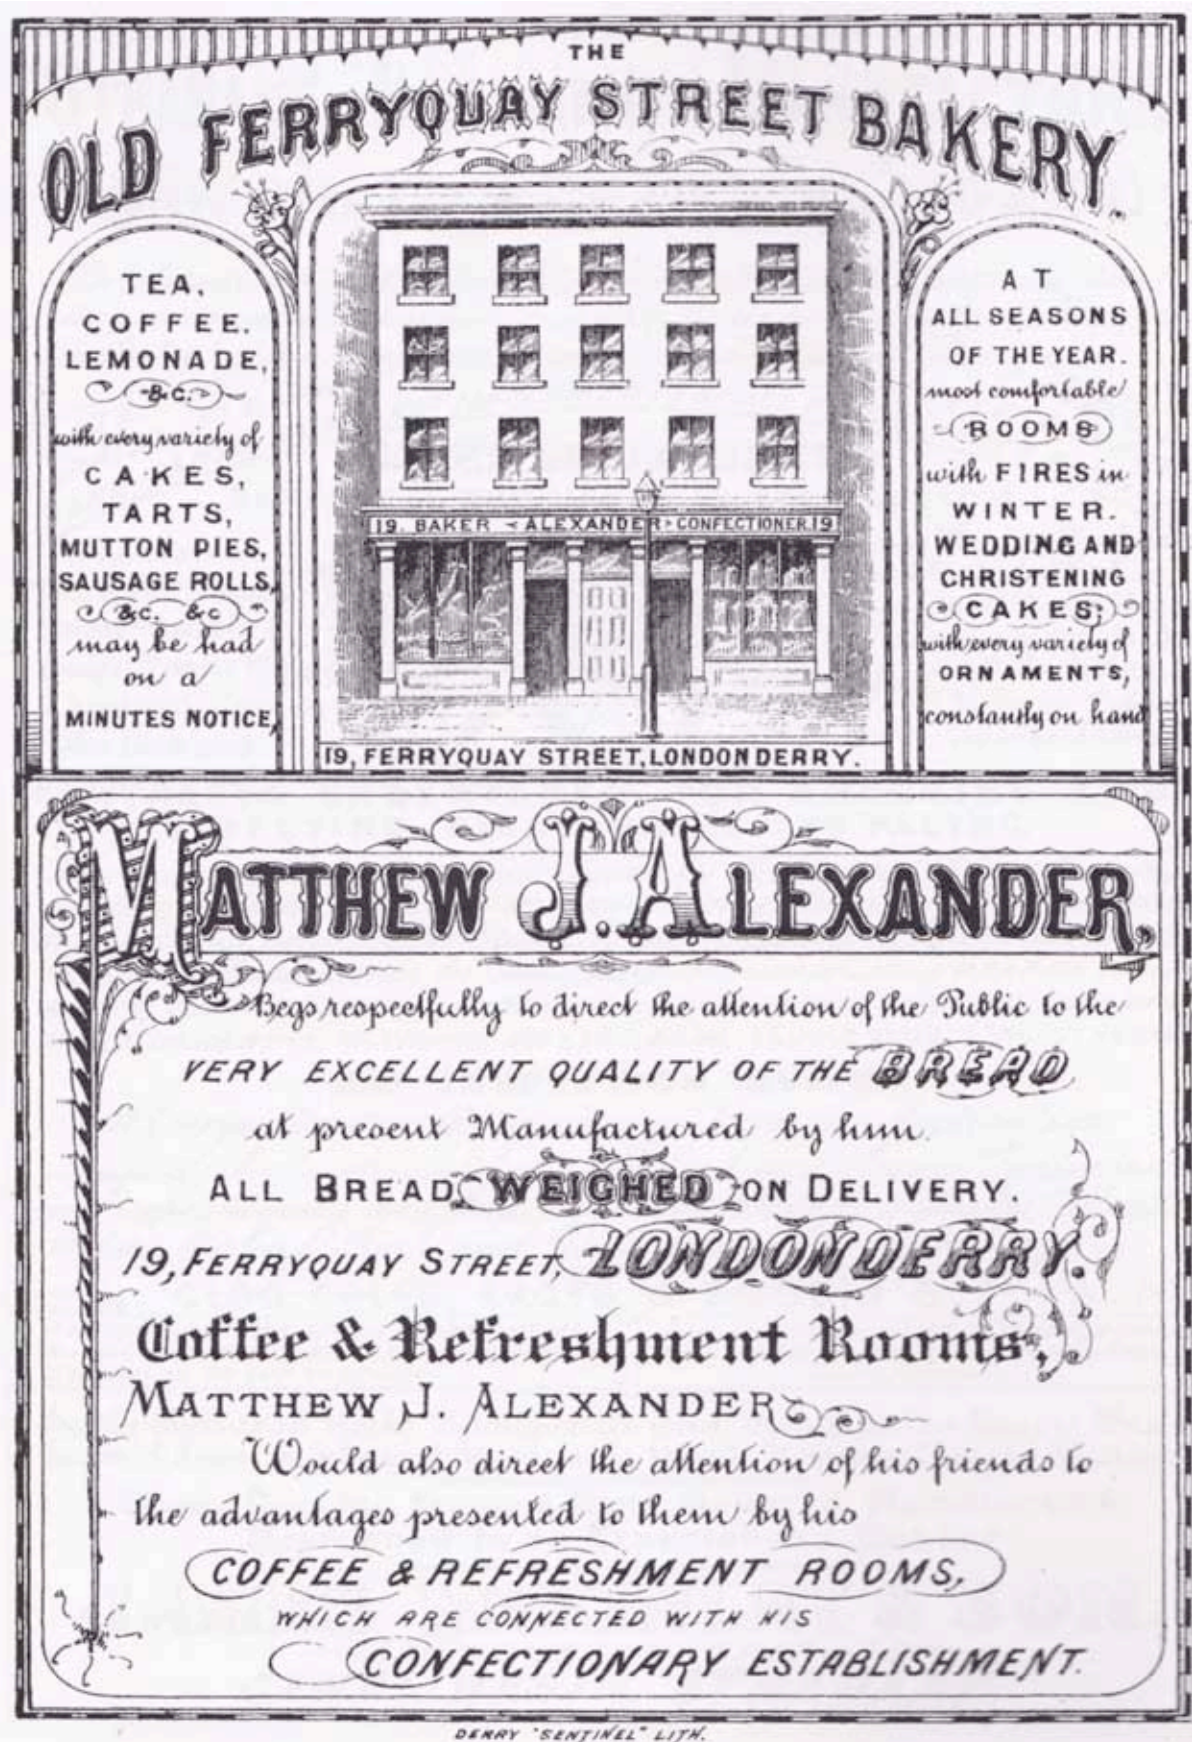 THE
OLD FERRYQUAY STREET BAKERY.
TEA,
COFFEE,
LEMONADE,
&C.
with every variety of
CAKES,
TARTS,
MUTTON PIES,
SAUSAGE ROLLS,
&C. &c
may be had
on a
MINUTES NOTICE,
19. BAKER ALEXANDER CONFECTIONER. 19
19, FERRYQUAY STREET, LONDONDERRY.
AT
ALL SEASONS
OF THE YEAR.
most comfortable
ROOMS
with FIRES in
WINTER.
WEDDING AND
CHRISTENING
CAKES;
with every variety of
ORNAMENTS,
constantly on hand
MATTHEW J. ALEXANDER,
Begs respectfully to direct the attention of the Public to the
VERY EXCELLENT QUALITY OF THE BREAD
at present Manufactured by him.
ALL BREAD WEIGHED ON DELIVERY.
19, FERRYQUAY STREET, LONDONDERRY.
Coffee & Refreshment Rooms,
MATTHEW J. ALEXANDER
Would also direct the attention of his friends to
the advantages presented to them by his
COFFEE & REFRESHMENT ROOMS,
WHICH ARE CONNECTED WITH HIS
CONFECTIONARY ESTABLISHMENT.
DERRY "SENTINEL" LITH.